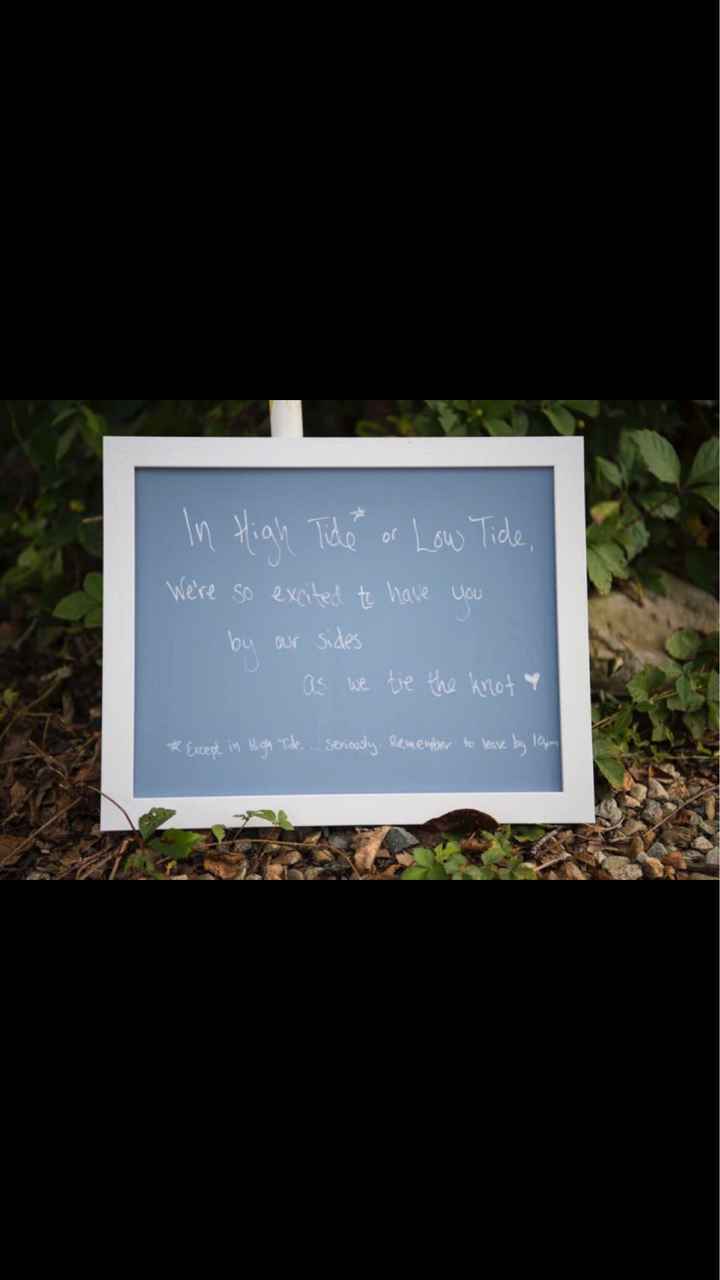 In High Tide* or Low Tide,
We're so excited to have you
by our sides
as we tie the knot ♥
*Except in High Tide... Seriously. Remember to leave by 10pm